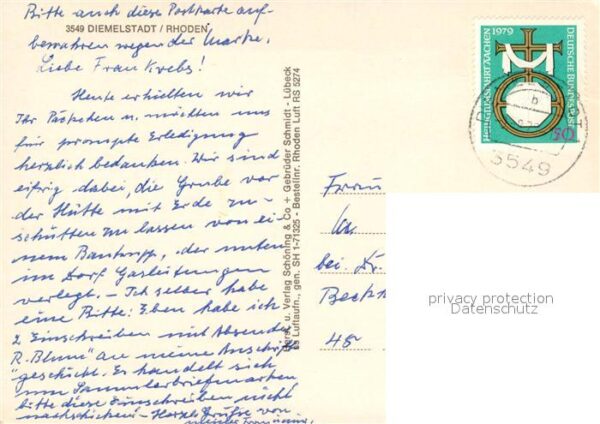 Bitte auch diese Postkarte auf-
bewahren wegen der Marke.
3549 DIEMELSTADT / RHODEN
Liebe Frau Krebs!
Heute erhielten wir
Ihr Päckchen u. möchten uns
für prompte Erledigung
herzlich bedanken. Wir sind
eifrig dabei, die Grube vor
der Hütte mit Erde zu-
schütten zu lassen von ei-
nem Bautrupp, der unten
im Dorf Gasleitungen
verlegt. – Ich selber habe
eine Bitte: Eben habe ich
2 Einschreiben mit Absender
R. Blum" an meine Anschrift
geschickt. Es handelt sich
um Sammlerbriefmarken
bitte diese Einschreiben nicht
nachschicken! – Herzl. Grüße von
Verlag Schöning & Co + Gebrüder Schmidt - Lübeck
Luftaufn., gen. SH 1-71325 - Bestellnr. Rhoden Luft RS 5274
1979
DEUTSCHE BUNDESPOST
50
3549
Frau
bei Dr.
48
privacy protection
Datenschutz